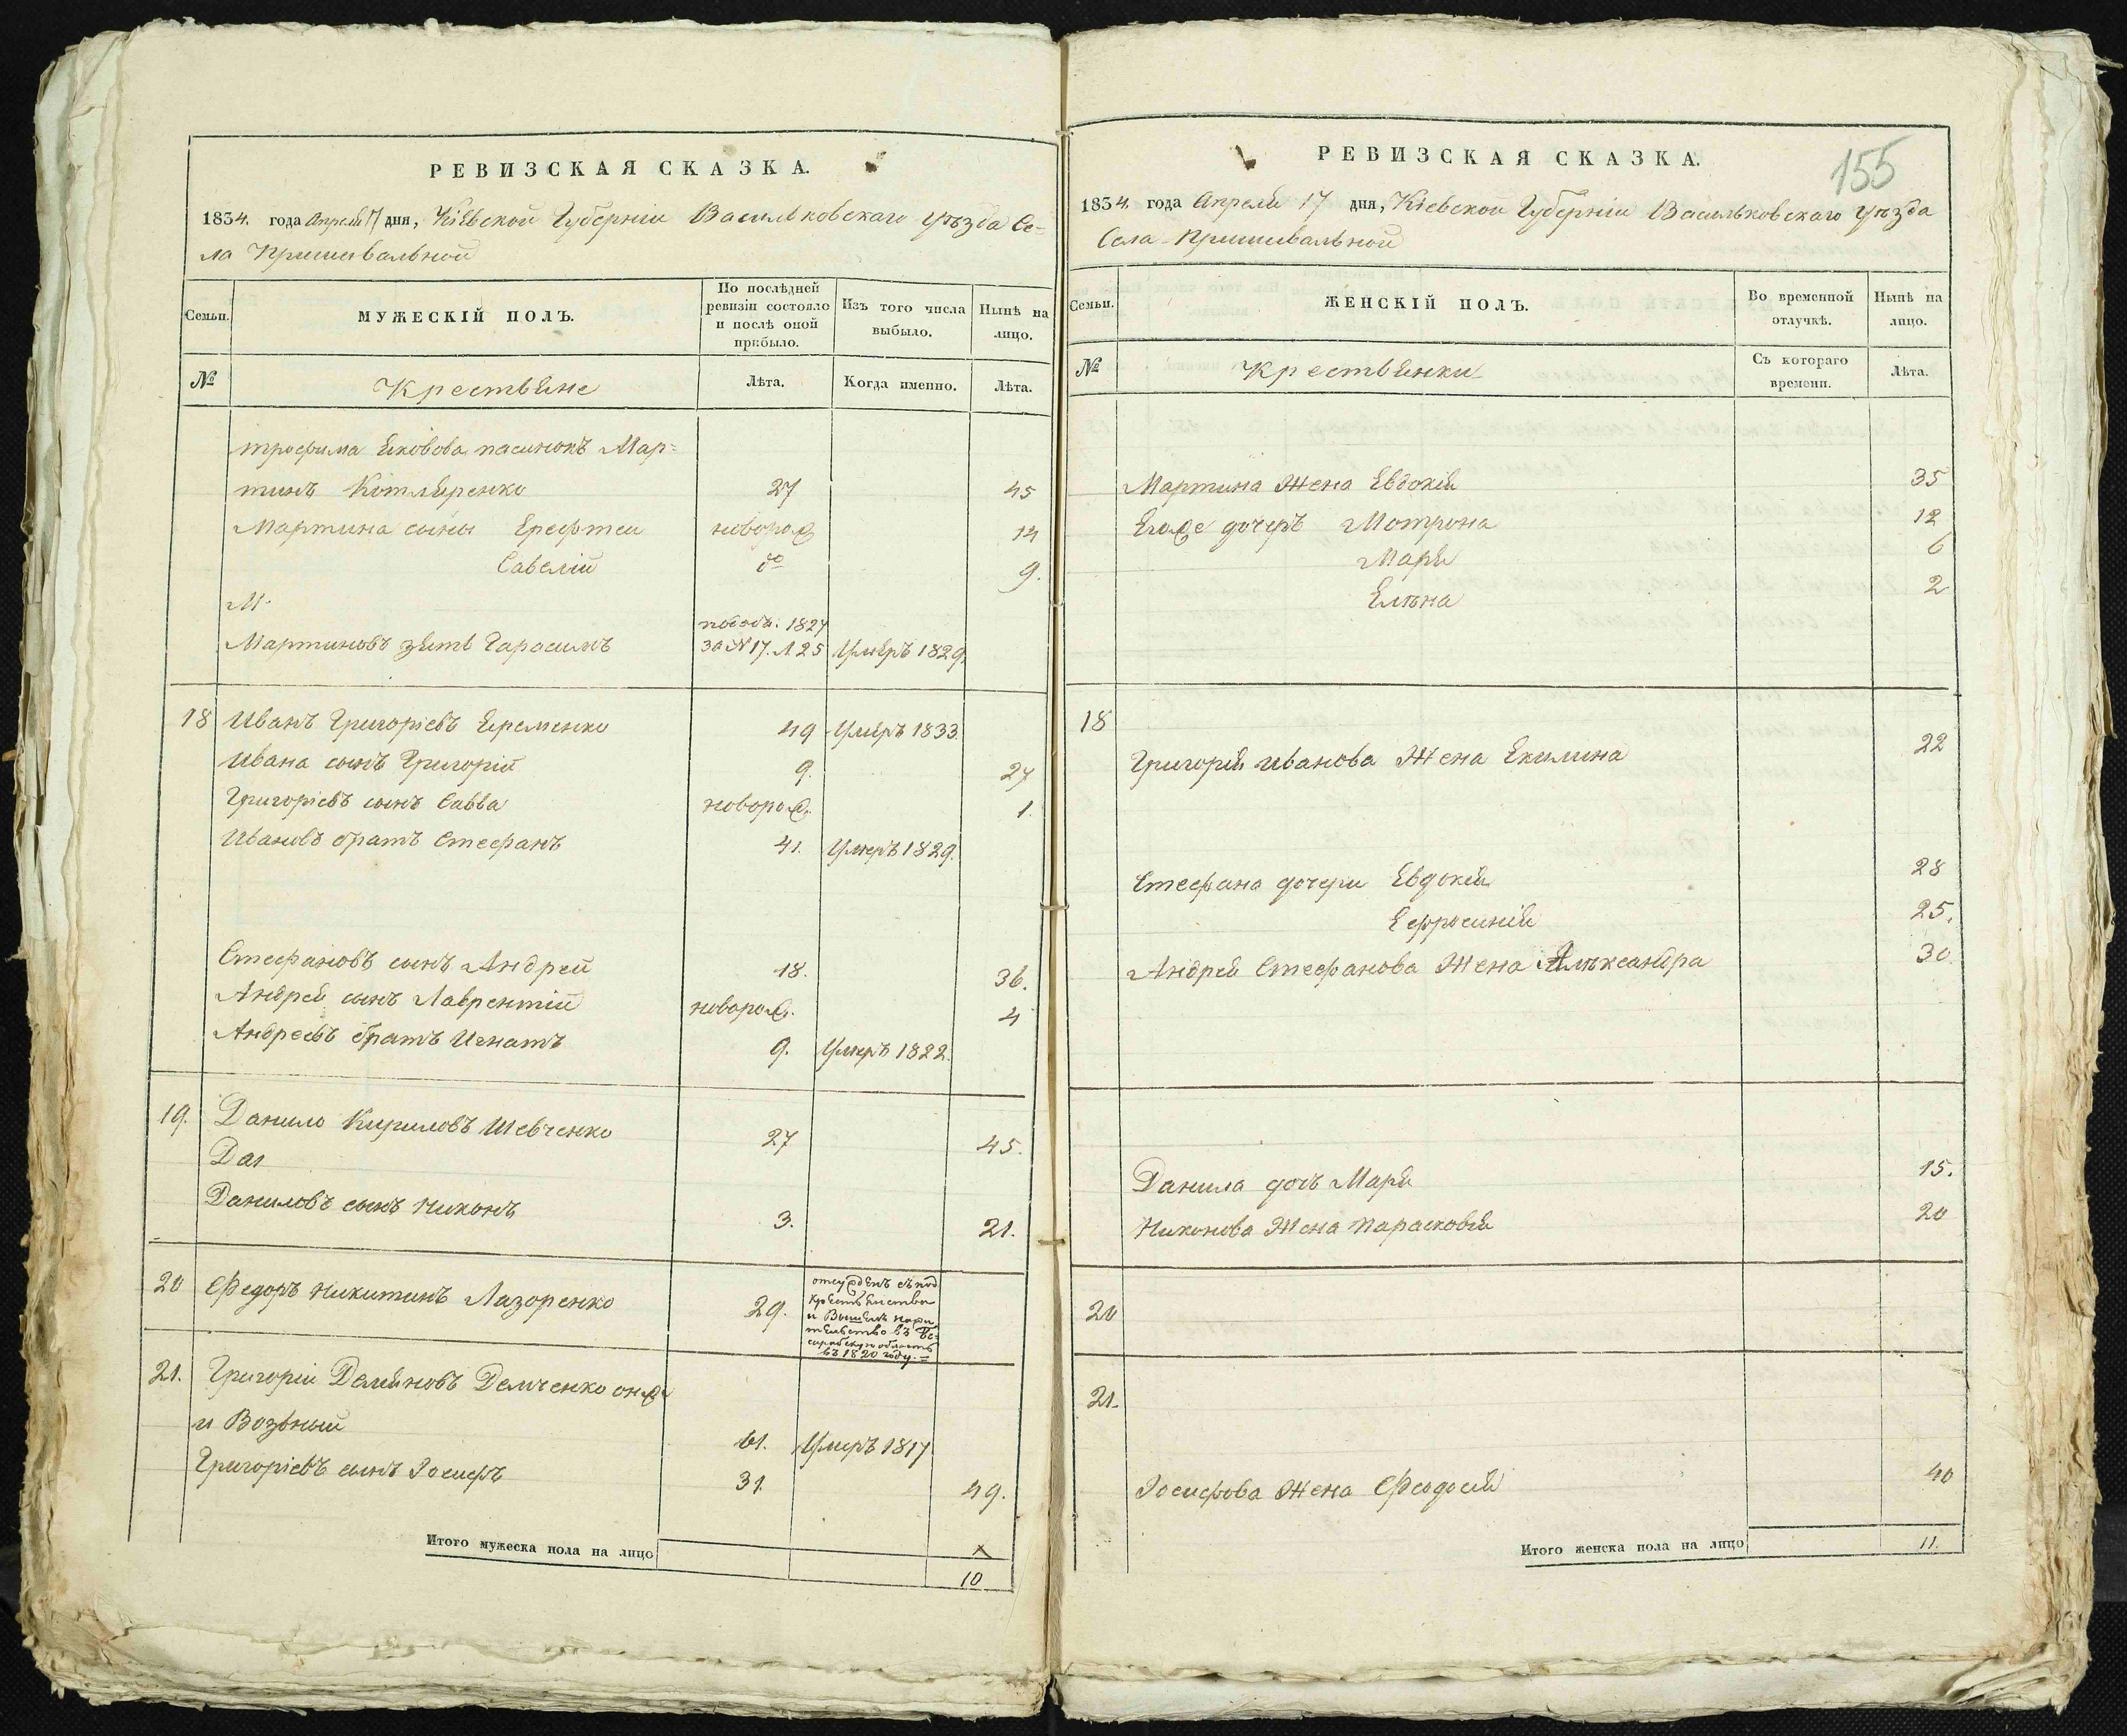 РЕВИЗСКАЯ СКАЗКА.
1834. года Апреля 17 дня, Кіевской Губерніи Васильковскаго уѣзда Се-
ла Пришивальной
Семьи.
МУЖЕСКІЙ ПОЛЪ.
По послѣдней
ревизіи состояло
и послѣ оной
прибыло.
Изъ того числа
выбыло.
Нынѣ на
лицо.
№
Крестьяне
Лѣта.
Когда именно.
Лѣта.
трофима Яковова пасинокъ Мар=
тинъ Котляренко 27 45
Мартина сыны Ерефтеи новорож 14
Савелій до 9.
М.
Мартиновъ зять Гарасимъ 1827 за № 17. Л 25 Умеръ 1829.
18 Иванъ Григоріевъ Еременко 49 Умеръ 1833.
Ивана сынъ Григорій 9. 27
Григоріевъ сынъ Савва новорож. 1.
Ивановъ братъ Стефанъ 41. Умеръ 1829.
Стефановъ сынъ Андрей 18. 36.
Андрея сынъ Лаврентій новорож. 4
Андреевъ братъ Игнатъ 9. Умеръ 1822.
19. Данило Кириловъ Шевченко 27 45.
Дан
Даниловъ сынъ Никонъ 3. 21.
20 Федоръ Никитинъ Лазоренко 29.
отсужденъ съ под
крестьянства
и Вышелъ на жи
тельство въ Бе=
сарабскую область
въ 1820 году.=
21. Григорій Демяновъ Демченко онже
и Возьный 61. Умеръ 1817
Григоріевъ сынъ Іосифъ 31. 49.
Итого мужеска пола на лицо
10
РЕВИЗСКАЯ СКАЗКА.
155
1834. года Апреля 17 дня, Кіевской Губерніи Васильковскаго уѣзда
Села Пришивальной
Семьи.
ЖЕНСКІЙ ПОЛЪ.
Во временной
отлучкѣ.
Нынѣ на
лицо.
№
Крестьянки
Съ котораго
времени.
Лѣта.
Мартина Жена Евдокія 35
Егоже дочеръ Мотрона 12
Марія 6
Елѣна 2
18
Григорія Иванова Жена Екилина 22
Стефана дочери Евдокія 28
Ефросинія 25.
Андрея Стефанова Жена Алѣксандра 30.
Данила дочъ Марія 15.
Никонова Жена Парасковія 20
20
21.
Іосифова Жена Феодосія 40
Итого женска пола на лицо 11.